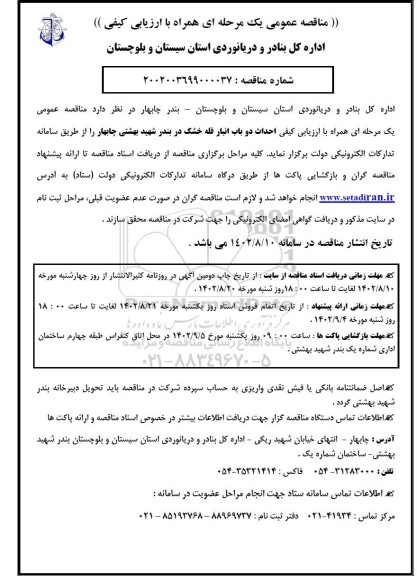 (( مناقصه عمومی یک مرحله ای همراه با ارزیابی کیفی ))
اداره کل بنادر و دریانوردی استان سیستان و بلوچستان
شماره مناقصه : ۲۰۰۲۰۰۳۶۹۹۰۰۰۰۳۷
اداره کل بنادر و دریانوردی استان سیستان و بلوچستان – بندر چابهار در نظر دارد مناقصه عمومی
یک مرحله ای همراه با ارزیابی کیفی احداث دو باب انبار فله خشک در بندر شهید بهشتی چابهار را از طریق سامانه
تدارکات الکترونیکی دولت برگزار نماید. کلیه مراحل برگزاری مناقصه از دریافت اسناد مناقصه تا ارائه پیشنهاد
مناقصه گران و بازگشایی پاکت ها از طریق درگاه سامانه تدارکات الکترونیکی دولت (ستاد) به ادرس
www.setadiran.ir انجام خواهد شد و لازم است مناقصه گران در صورت عدم عضویت قبلی، مراحل ثبت نام
در سایت مذکور و دریافت گواهی امضای الکترونیکی را جهت شرکت در مناقصه محقق سازند .
تاریخ انتشار مناقصه در سامانه ۱۴۰۲/۸/۱۰ می باشد .
مهلت زمانی دریافت اسناد مناقصه از سایت : از تاریخ چاپ دومین آگهی در روزنامه کثیرالانتشار از روز چهارشنبه مورخه
۱۴۰۲/۸/۱۰ لغایت تا ساعت ۱۸:۰۰ روز شنبه مورخه ۱۴۰۲/۸/۲۰ .
مهلت زمانی ارائه پیشنهاد : از تاریخ اتمام فروش اسناد روز یکشنبه مورخه ۱۴۰۲/۸/۲۱ لغایت تا ساعت ۱۸:۰۰
روز شنبه مورخه ۱۴۰۲/۹/۴ .
مهلت بازگشایی پاکت ها : ساعت ۰۹:۰۰ روز یکشنبه مورخ ۱۴۰۲/۹/۵ در محل اتاق کنفراس طبقه چهارم ساختمان
اداری شماره یک بندر شهید بهشتی .
پایگاه اطلاع رسانی مناقصه و مزایده
۰۲۱-۸۸۳۴۹۶۷۰-۵
اصل ضمانتنامه بانکی یا فیش نقدی واریزی به حساب سپرده شرکت در مناقصه باید تحویل دبیرخانه بندر
شهید بهشتی گردد .
اطلاعات تماس دستگاه مناقصه گزار جهت دریافت اطلاعات بیشتر در خصوص اسناد مناقصه و ارائه پاکت ها
آدرس : چابهار - انتهای خیابان شهید ریگی - اداره کل بنادر و دریانوردی استان سیستان و بلوچستان بندر شهید
بهشتی- ساختمان شماره یک .
تلفن : ۳۱۲۸۳۰۰۰- ۰۵۴ فاکس : ۳۵۳۲۱۴۱۴-۰۵۴
اطلاعات تماس سامانه ستاد جهت انجام مراحل عضویت در سامانه :
مرکز تماس : ۴۱۹۳۴-۰۲۱ دفتر ثبت نام : ۸۸۹۶۹۷۳۷ – ۸۵۱۹۳۷۶۸ – ۰۲۱